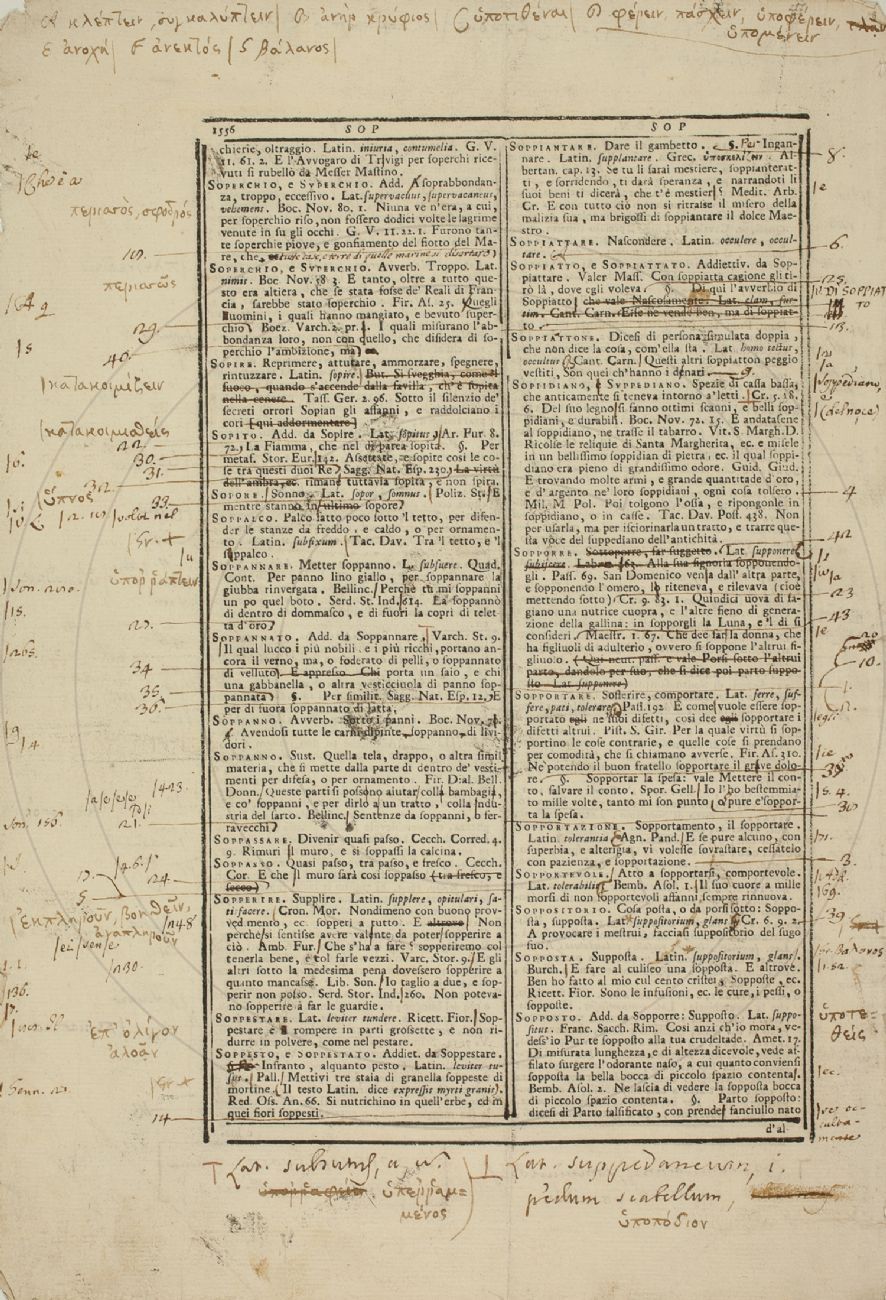 A κλέπτειν, συγκαλύπτειν | B ἀνὴρ κρύφιος | C ὑποτιθέναι | D φέρειν, πάσχειν, ὑποφέρειν,
ὑπομένειν
E ἀνοχή | F ἀνεκτός | G βάλανος |
1556 SOP SOP
chierie, oltraggio. Latin. iniuria, contumelia. G. V.
11. 61. 2. E l'Avvogaro di Trivigi per soperchi rice-
vuti si rubellò da Messer Mastino.
SOPERCHIO, e SVPERCHIO. Add. A soprabbondan-
za, troppo, eccessivo. Lat. supervacuus, supervacaneus,
vehemens. Boc. Nov. 80. 1. Niuna ve n'era, a cui,
per soperchio riso, non fossero dodici volte le lagrime
venute in su gli occhi. G. V. 11. 22. 1. Furono tan-
te soperchie piove, e gonfiamento del fiotto del Ma-
re, che
SOPERCHIO, e SVPERCHIO. Avverb. Troppo. Lat.
nimis. Boc. Nov. 98. 3. E tanto, oltre a tutto que-
sto era altiera, che se stata fosse de' Reali di Fran-
cia, sarebbe stato soperchio. Fir. As. 25. Quegli
uomini, i quali hanno mangiato, e bevuto super-
chio. Boez. Varch. 2. pr. I quali misurano l'ab-
bondanza loro, non con quello, che disidera di so-
perchio l'ambizione, ma
SOPIRE. Reprimere, attutare, ammorzare, spegnere,
rintuzzare. Latin. sopire. But. Si svegghia, come il
fuoco, quando s'accende dalla favilla, ch'è sopita
nella cenere. Tass. Ger. 2. 96. Sotto il silenzio de'
secreti orrori Sopian gli affanni, e raddolciano i
cori (qui addormentare)
SOPITO. Add. da Sopire. Lat. sopitus. Ar. Fur. 8.
72. La fiamma, che nel dì parea sopita. §. Per
metaf. Stor. Eur. 142. Assestate, e sopite così le co-
se tra questi duoi Re. Sagg. Nat. Esp. 230. La virtù
dell'ambra, ec. rimane tuttavia sopita, e non spira.
SOPORE. Sonno. Lat. sopor, somnus. Poliz. St. E
mentre stanno in sopore
SOPPALCO. Palco fatto poco sotto 'l tetto, per difen-
der le stanze da freddo, e caldo, o per ornamen-
to. Latin. subfixum. Tac. Dav. Tra 'l tetto, e 'l
soppalco.
SOPPANNARE. Metter soppanno. L. subsuere. Quad.
Cont. Per panno lino giallo, per soppannare la
giubba rinvergata. Bellinc. Perchè tu mi soppanni
un po quel boto. Serd. St. Ind. 614. La soppannò
di dentro di dommasco, e di fuori la coprì di telet-
ta d'oro
SOPPANNATO. Add. da Soppannare, Varch. St. 9.
Il qual lucco i più nobili, e i più ricchi, portano an-
cora il verno, ma, o foderato di pelli, o soppannato
di velluto. E appresso. Chi porta un saio, e chi
una gabbanella, o altra vesticciuola di panno sop-
pannata §. Per similit. Sagg. Nat. Esp. 12. E
per di fuora soppannato di latta.
SOPPANNO. Avverb. Sotto i panni. Boc. Nov. 76.
8. Avendosi tutte le carni dipinte soppanno, di livi-
dori.
SOPPANNO. Sust. Quella tela, drappo, o altra simil
materia, che si mette dalla parte di dentro de' vesti-
menti per difesa, o per ornamento. Fir. Dial. Bell.
Donn. Queste parti si possono aiutar colla bambagia,
e co' soppanni, e per dirlo a un tratto, colla indu-
stria del sarto. Bellinc. Sentenze da soppanni, b fer-
ravecchi
SOPPASSARE. Divenir quasi passo. Cecch. Corred. 4.
9. Rimuri Il muro, e si soppassi la calcina.
SOPPASSO. Quasi passo, tra passo, e fresco. Cecch.
Cor. E che Il muro sarà così soppasso (tra fresco, e
secco)
SOPPERIRE. Supplire. Latin. supplere, opitulari, sa-
ti facere. Cron. Mor. Nondimeno con buono prov-
vedimento, ec. sopperì a tutto. E altrove. Non
perchè si sentisse avere valente da poter sopperire a
ciò. Amb. Fur. Che s'ha a fare? sopperiremo col
tenerla bene, e tol farle vezzi. Varc. Stor. 9. E gli
altri sotto la medesima pena dovessero sopperire a
quanto mancasse. Lib. Son. Io taglio a due, e sop-
perir non posso. Serd. Stor. Ind. 260. Non poteva-
no sopperire a far le guardie.
SOPPESTARE. Lat. leviter tundere. Ricett. Fior. Sop-
pestare è rompere in parti grossette, e non ri-
durre in polvere, come nel pestare.
SOPPESTO, e SOPPESTATO. Addiet. da Soppestare.
Infranto, alquanto pesto. Latin. leviter tu-
sus. Pall. Mettivi tre staia di granella soppeste di
mortine. Il testo Latin. dice expressis myrti granis.
Red. Oss. An. 66. Si nutrichino in quell'erbe, ed in
quei fiori soppesti.
SOPPIANTARE. Dare il gambetto. §. Per Ingan-
nare. Latin. supplantare. Grec. ὑποσκελίζειν. Al-
bertan. cap. 13. Se tu li sarai mestiere, soppianterat-
ti, e sorridendo, ti darà speranza, e narrandoti li
suoi beni ti dicerà, che t'è mestier? Medit. Arb.
Cr. E con tutto ciò non si ritraisse il misero della
malizia sua, ma brigossi di soppiantare il dolce Mae-
stro.
SOPPIATTARE. Nascondere. Latin. occulere, occul-
tare.
SOPPIATTO, e SOPPIATTATO. Addiettiv. da Sop-
piattare. Valer Mass. Con soppiatta cagione gli ti-
rò là, dove egli voleva. §. Di qui l'avverbio di
Soppiatto che vale Nascosamente. Lat. clam, fur-
tim. Cant. Carn. Esse ne vende ben, ma di soppiat-
to
SOPPIATTONE. Dicesi di persona simulata doppia,
che non dice la cosa, com'ella sta. Lat. homo tectus,
occultus. Cant. Carn. Questi altri soppiatton peggio
vestiti, Son quei ch'hanno i denari
SOPPIDIANO, e SVPPEDIANO. Spezie di cassa bassa,
che anticamente si teneva intorno a' letti. Cr. 5. 18.
6. Del suo legno si fanno ottimi scanni, e belli sop-
pidiani, e durabili. Boc. Nov. 72. 15. E andatasene
al soppidiano, ne trasse il tabarro. Vit. S. Margh. D.
Ricolse le reliquie di Santa Margherita, ec. e misele
in un bellissimo soppidian di pietra, ec. il qual soppi-
diano era pieno di grandissimo odore. Guid. Giud.
E trovando molte armi, e grande quantitade d'oro,
e d'argento ne' loro soppidiani, ogni cosa tolsero.
Mil. M. Pol. Poi tolgono l'ossa, e ripongonle in
soppidiano, o in casse. Tac. Dav. Post. 438. Non
per usarla, ma per isciorinarla un tratto, e trarre que-
sta voce del suppediano dell'antichità.
SOPPORRE. Sottoporre, far suggetto. Lat. supponere
subiicere. Alla sua signoria sopponendo-
gli. Pass. 69. San Domenico venìa dall'altra parte,
e sopponendo l'omero, lo riteneva, e rilevava (cioè
mettendo sotto). Cr. 9. 83. 1. Quindici uova di fa-
giano una nutrice cuopra, e l'altre fieno di genera-
zione della gallina: in sopporgli la Luna, e 'l dì si
consideri. Maestr. 1. 67. Che dee far la donna, che
ha figliuoli di adulterio, ovvero si soppone l'altrui fi-
gliuolo. (Qui neut. pass. e vale Porsi sotto l'altrui
parto, dandolo per suo, che si dice poi parto suppo-
sto Lat. supponere)
SOPPORTARE. Sofferire, comportare. Lat. ferre, suf-
fere, pati, tolerare. Pass. 192. E come vuole essere sop-
portato egli ne' suoi difetti, così dee egli sopportare i
difetti altrui. Pist. S. Gir. Per la quale virtù si sop-
portino le cose contrarie, e quelle cose si prendano
per comodità, che si chiamano avverse. Fir. As. 210.
Ne potendo il buon fratello sopportare il grave dolo-
re. §. Sopportar la spesa: vale Mettere il con-
to, salvare il conto. Spor. Gell. Io l'ho bestemmia-
to mille volte, tanto mi son punto, o pure e' soppor-
ta la spesa.
SOPPORTAZIONE. Sopportamento, il sopportare.
Latin. tolerantia. Agn. Pand. E se pure alcuno, con
superbia, e alterigia, vi volesse sovrastare, cessatelo
con pazienza, e sopportazione.
SOPPORTEVOLE. Atto a sopportarsi, comportevole.
Lat. tolerabilis. Bemb. Asol. 1. Il suo cuore a mille
morsi di non sopportevoli affanni sempre rinnuova.
SOPPOSITORIO. Cosa posta, o da porsi sotto: Soppo-
sta, supposta. Lat. suppositorium, glans. Cr. 6. 9. 2.
A provocare i mestrui, facciasi suppositorio del sugo
suo.
SOPPOSTA. Supposta. Latin. suppositorium, glans.
Burch. E fare al culiseo una sopposta. E altrove.
Ben ho fatto al mio cul cento cristei, Sopposte, ec.
Ricett. Fior. Sono le infusioni, ec. le cure, i pessi, o
sopposte.
SOPPOSTO. Add. da Sopporre: Supposto. Lat. suppo-
situs. Franc. Sacch. Rim. Così anzi ch'io mora, ve-
dess'io Pur te sopposto alla tua crudeltade. Amet. 17.
Di misurata lunghezza, e di altezza dicevole, vede af-
filato surgere l'odorante naso, a cui quanto conviensi
sopposta la bella bocca di piccolo spazio contenta.
Bemb. Asol. 2. Ne lascia di vedere la sopposta bocca
di piccolo spazio contenta. §. Parto sopposto:
dicesi di Parto falsificato, con prender fanciullo nato
d'al-
περισσὸς, σφοδρός
περισσῶς
κατακοιμίζειν
κατακοιμηθείς
ὕπνος
ὑποῤῥάπτειν
ἐκπληροῦν, βοηθεῖν,
ἀναπληροῦν
ἐπ' ὀλίγον
ἀλοᾶν
DI SOPPIATTO
soppediano,
βάλανος
ὑποτε-
θείς
occulta-
mente
Lat. subsutus, a, um.
ὑπεῤῥαμ-
μένος
Lat. suppedaneum, i.
pedum scabellum,
ὑποπόδιον